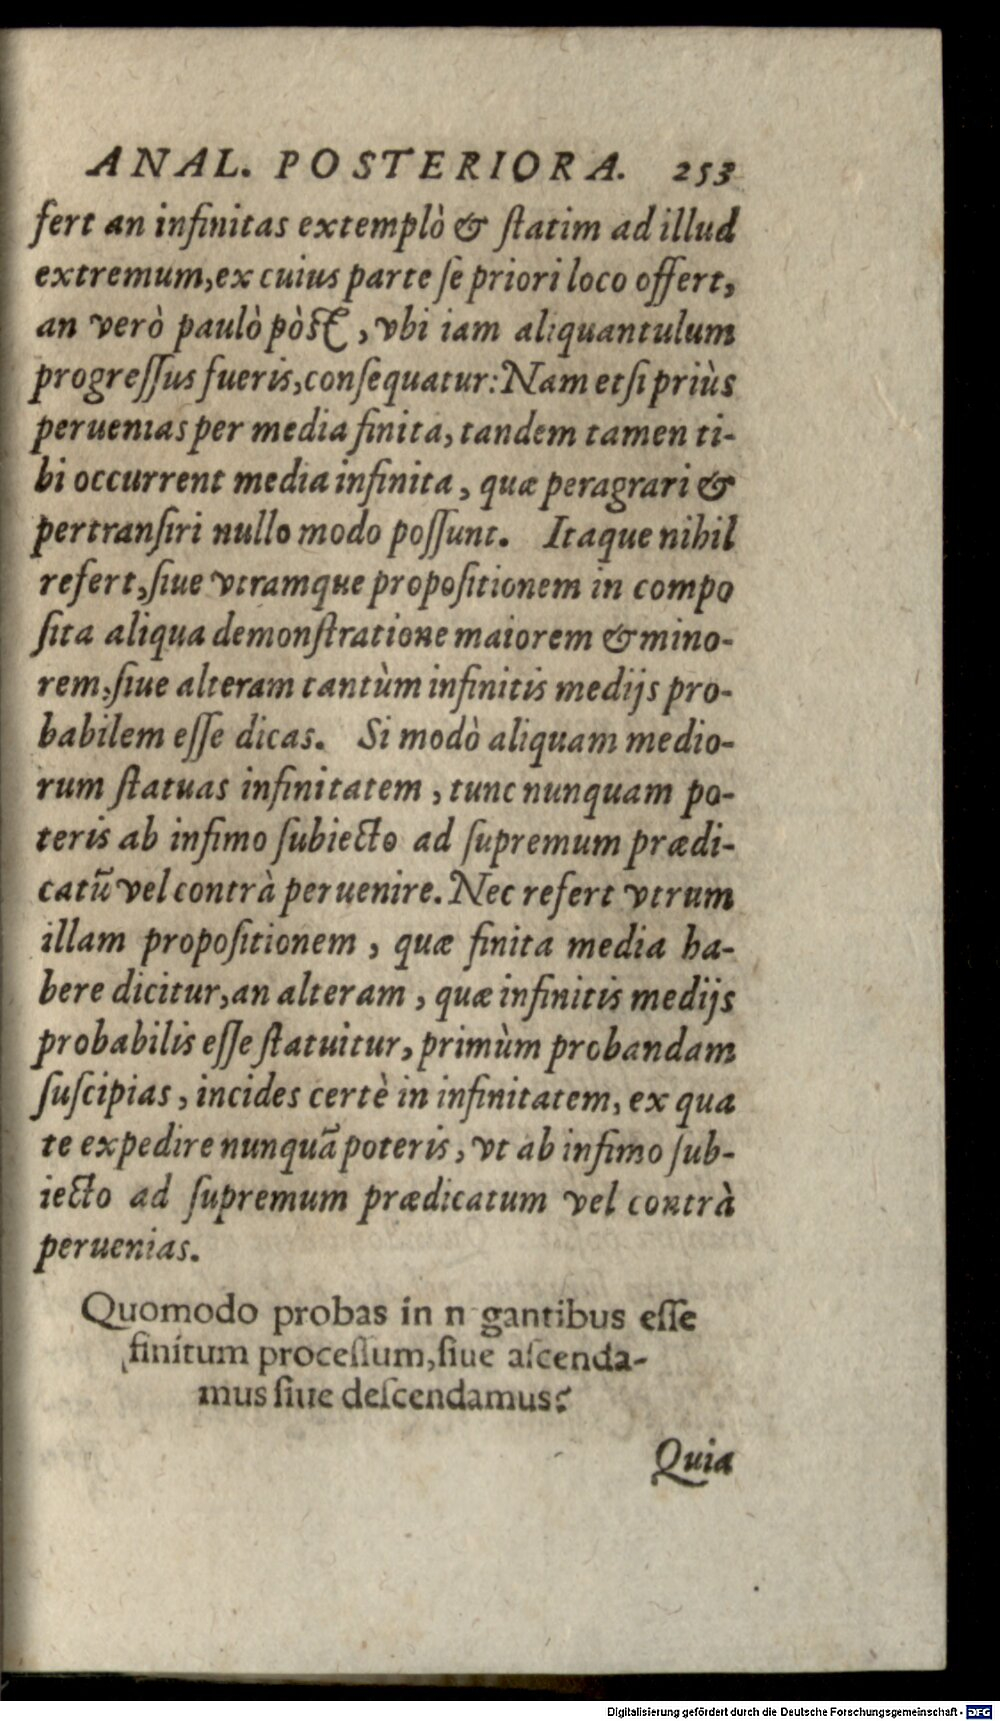 ANAL. POSTERIORA. 253
fert an infinitas extemplò & ſtatim ad illud
extremum, ex cuius parte ſe priori loco offert,
an verò paulò pòſt, vbi iam aliquantulum
progreſſus fueris, conſequatur: Nam etſi priùs
peruenias per media finita, tandem tamen ti-
bi occurrent media infinita, quæ peragrari &
pertranſiri nullo modo poſſunt. Itaque nihil
refert, ſiue vtramque propoſitionem in compo
ſita aliqua demonſtratione maiorem & mino-
rem, ſiue alteram tantùm infinitis medijs pro-
babilem eſſe dicas. Si modò aliquam medio-
rum ſtatuas infinitatem, tunc nunquam po-
teris ab infimo ſubiecto ad ſupremum prædi-
catū vel contrà peruenire. Nec refert vtrum
illam propoſitionem, quæ finita media ha-
bere dicitur, an alteram, quæ infinitis medijs
probabilis eſſe ſtatuitur, primùm probandam
ſuſcipias, incides certè in infinitatem, ex qua
te expedire nunquā poteris, vt ab infimo ſub-
iecto ad ſupremum prædicatum vel contrà
peruenias.
Quomodo probas in n gantibus eſſe
finitum proceſſum, ſiue aſcenda-
mus ſiue deſcendamus?
Quia
Digitalisierung gefördert durch die Deutsche Forschungsgemeinschaft - DFG